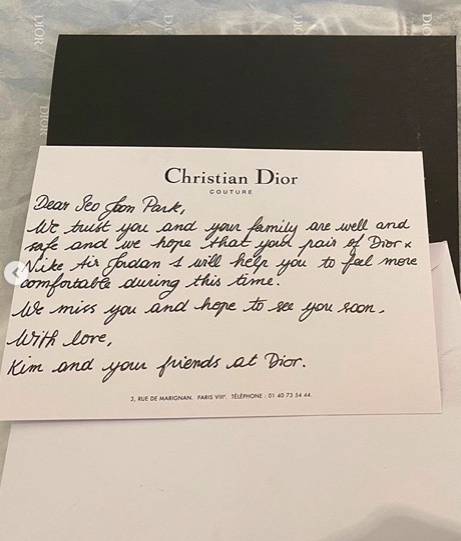 DIOR
DIOR
DIOR
DIOR
DIOR
DIOR
Christian Dior
COUTURE
Dear Seo Joon Park,
We trust you and your family are well and
safe and we hope that your pair of Dior x
Nike Air Jordan 1 will help you to feel more
comfortable during this time.
We miss you and hope to see you soon.
With love,
Kim and your friends at Dior.
3, RUE DE MARIGNAN. PARIS VIIIᵉ. TÉLÉPHONE : 01 40 73 54 44